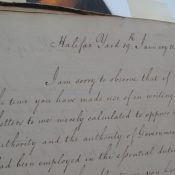 Halifax Yard 19th January 18
I am sorry to observe that if
the time you have made use of in writing
letters to me merely calculated to oppose
authority and the authority of Governmen
had been employed in the essential duties
you